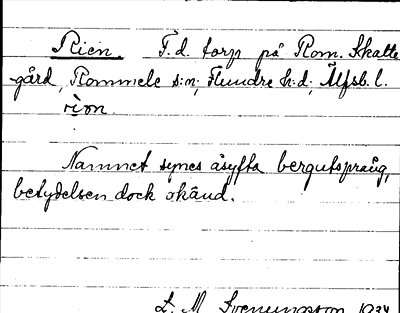 Rien. F.d. torp på Rom. Skatte
gård, Rommele s:n, Flundre h.d., Älfsb. l.
rìon.
Namnet synes åsyfta bergutsprång,
betydelsen dock okänd.
L. M. Svenungsson 1934